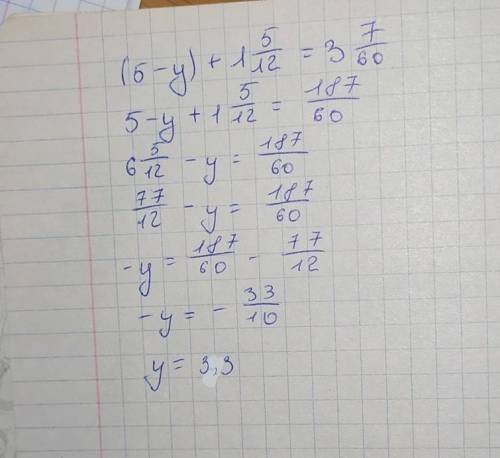 (5-y) + 1 5/12 = 3 7/60
5-y + 1 5/12 = 187/60
6 5/12 - y = 187/60
77/12 - y = 187/60
-y = 187/60 - 77/12
-y = - 33/10
y = 3,3